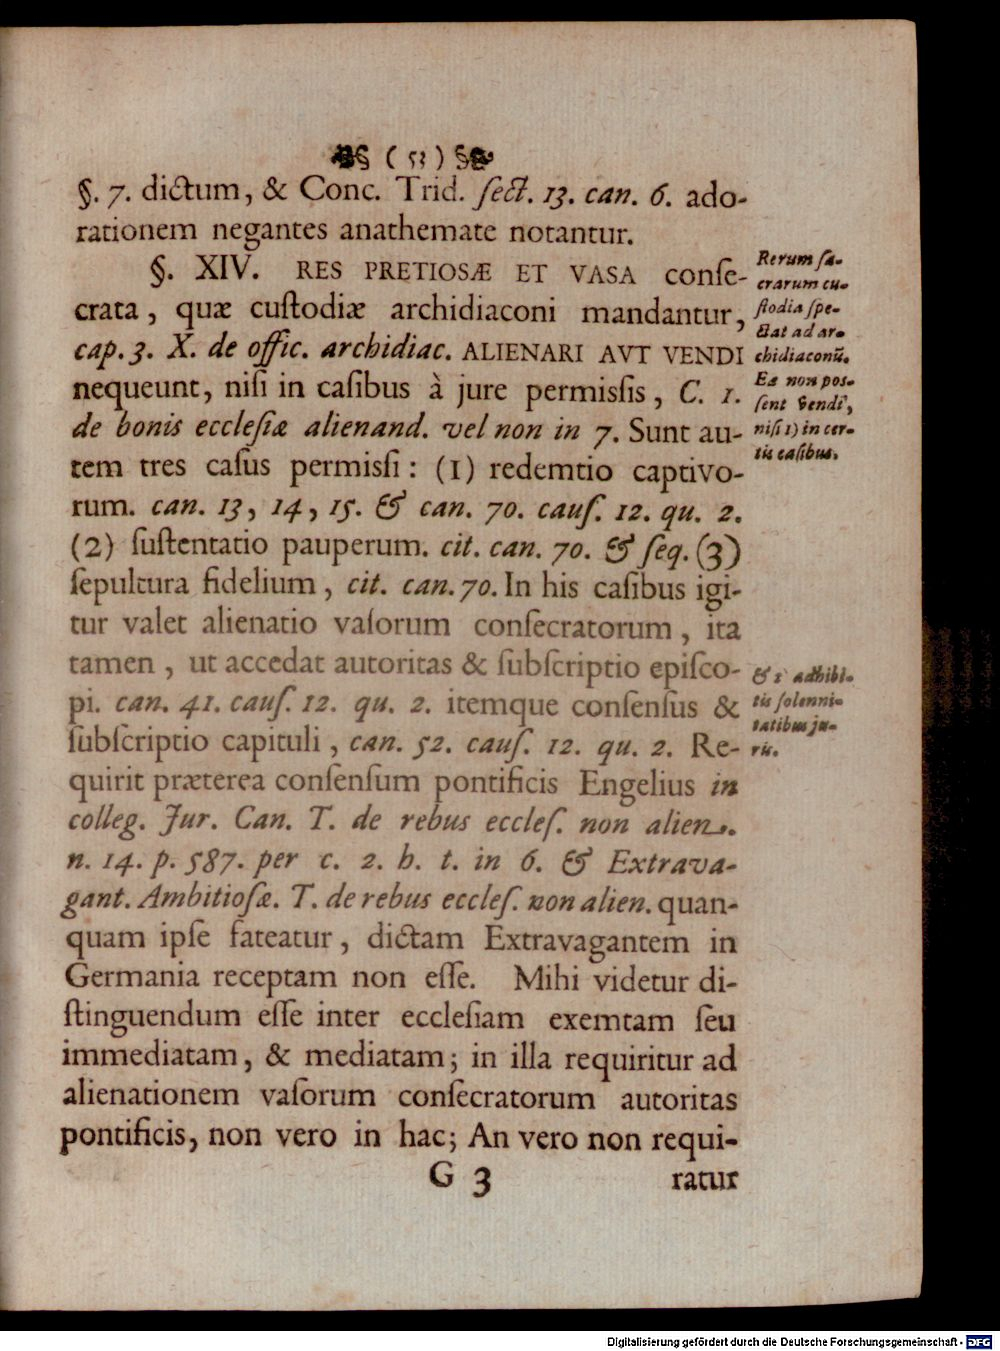 § ( 53 ) §
§. 7. dictum, & Conc. Trid. ſect. 13. can. 6. ado-
rationem negantes anathemate notantur.
§. XIV. RES PRETIOSÆ ET VASA conſe-
crata, quæ cuſtodiæ archidiaconi mandantur,
cap. 3. X. de offic. archidiac. ALIENARI AVT VENDI
nequeunt, niſi in caſibus à jure permiſſis, C. 1.
de bonis eccleſiæ alienand. vel non in 7. Sunt au-
tem tres caſus permiſſi: (1) redemtio captivo-
rum. can. 13, 14, 15. & can. 70. cauſ. 12. qu. 2.
(2) ſuſtentatio pauperum. cit. can. 70. & ſeq. (3)
ſepultura fidelium, cit. can. 70. In his caſibus igi-
tur valet alienatio vaſorum conſecratorum, ita
tamen, ut accedat autoritas & ſubſcriptio epiſco-
pi. can. 41. cauſ. 12. qu. 2. itemque conſenſus &
ſubſcriptio capituli, can. 52. cauſ. 12. qu. 2. Re-
quirit præterea conſenſum pontificis Engelius in
colleg. Jur. Can. T. de rebus eccleſ. non alien.
n. 14. p. 587. per c. 2. h. t. in 6. & Extrava-
gant. Ambitioſæ. T. de rebus eccleſ. non alien. quan-
quam ipſe fateatur, dictam Extravagantem in
Germania receptam non eſſe. Mihi videtur di-
ſtinguendum eſſe inter eccleſiam exemtam ſeu
immediatam, & mediatam; in illa requiritur ad
alienationem vaſorum conſecratorum autoritas
pontificis, non vero in hac; An vero non requi-
G 3 ratur
Rerum ſa-
crarum cu-
ſtodia ſpe-
ctat ad ar-
chidiaconū.
Eæ non poſ-
ſent vendi,
niſi 1) in cer-
tis caſibus.
& 2 adhibi-
tis ſolenni-
tatibus ju-
ris.
Digitalisierung gefördert durch die Deutsche Forschungsgemeinschaft - DFG